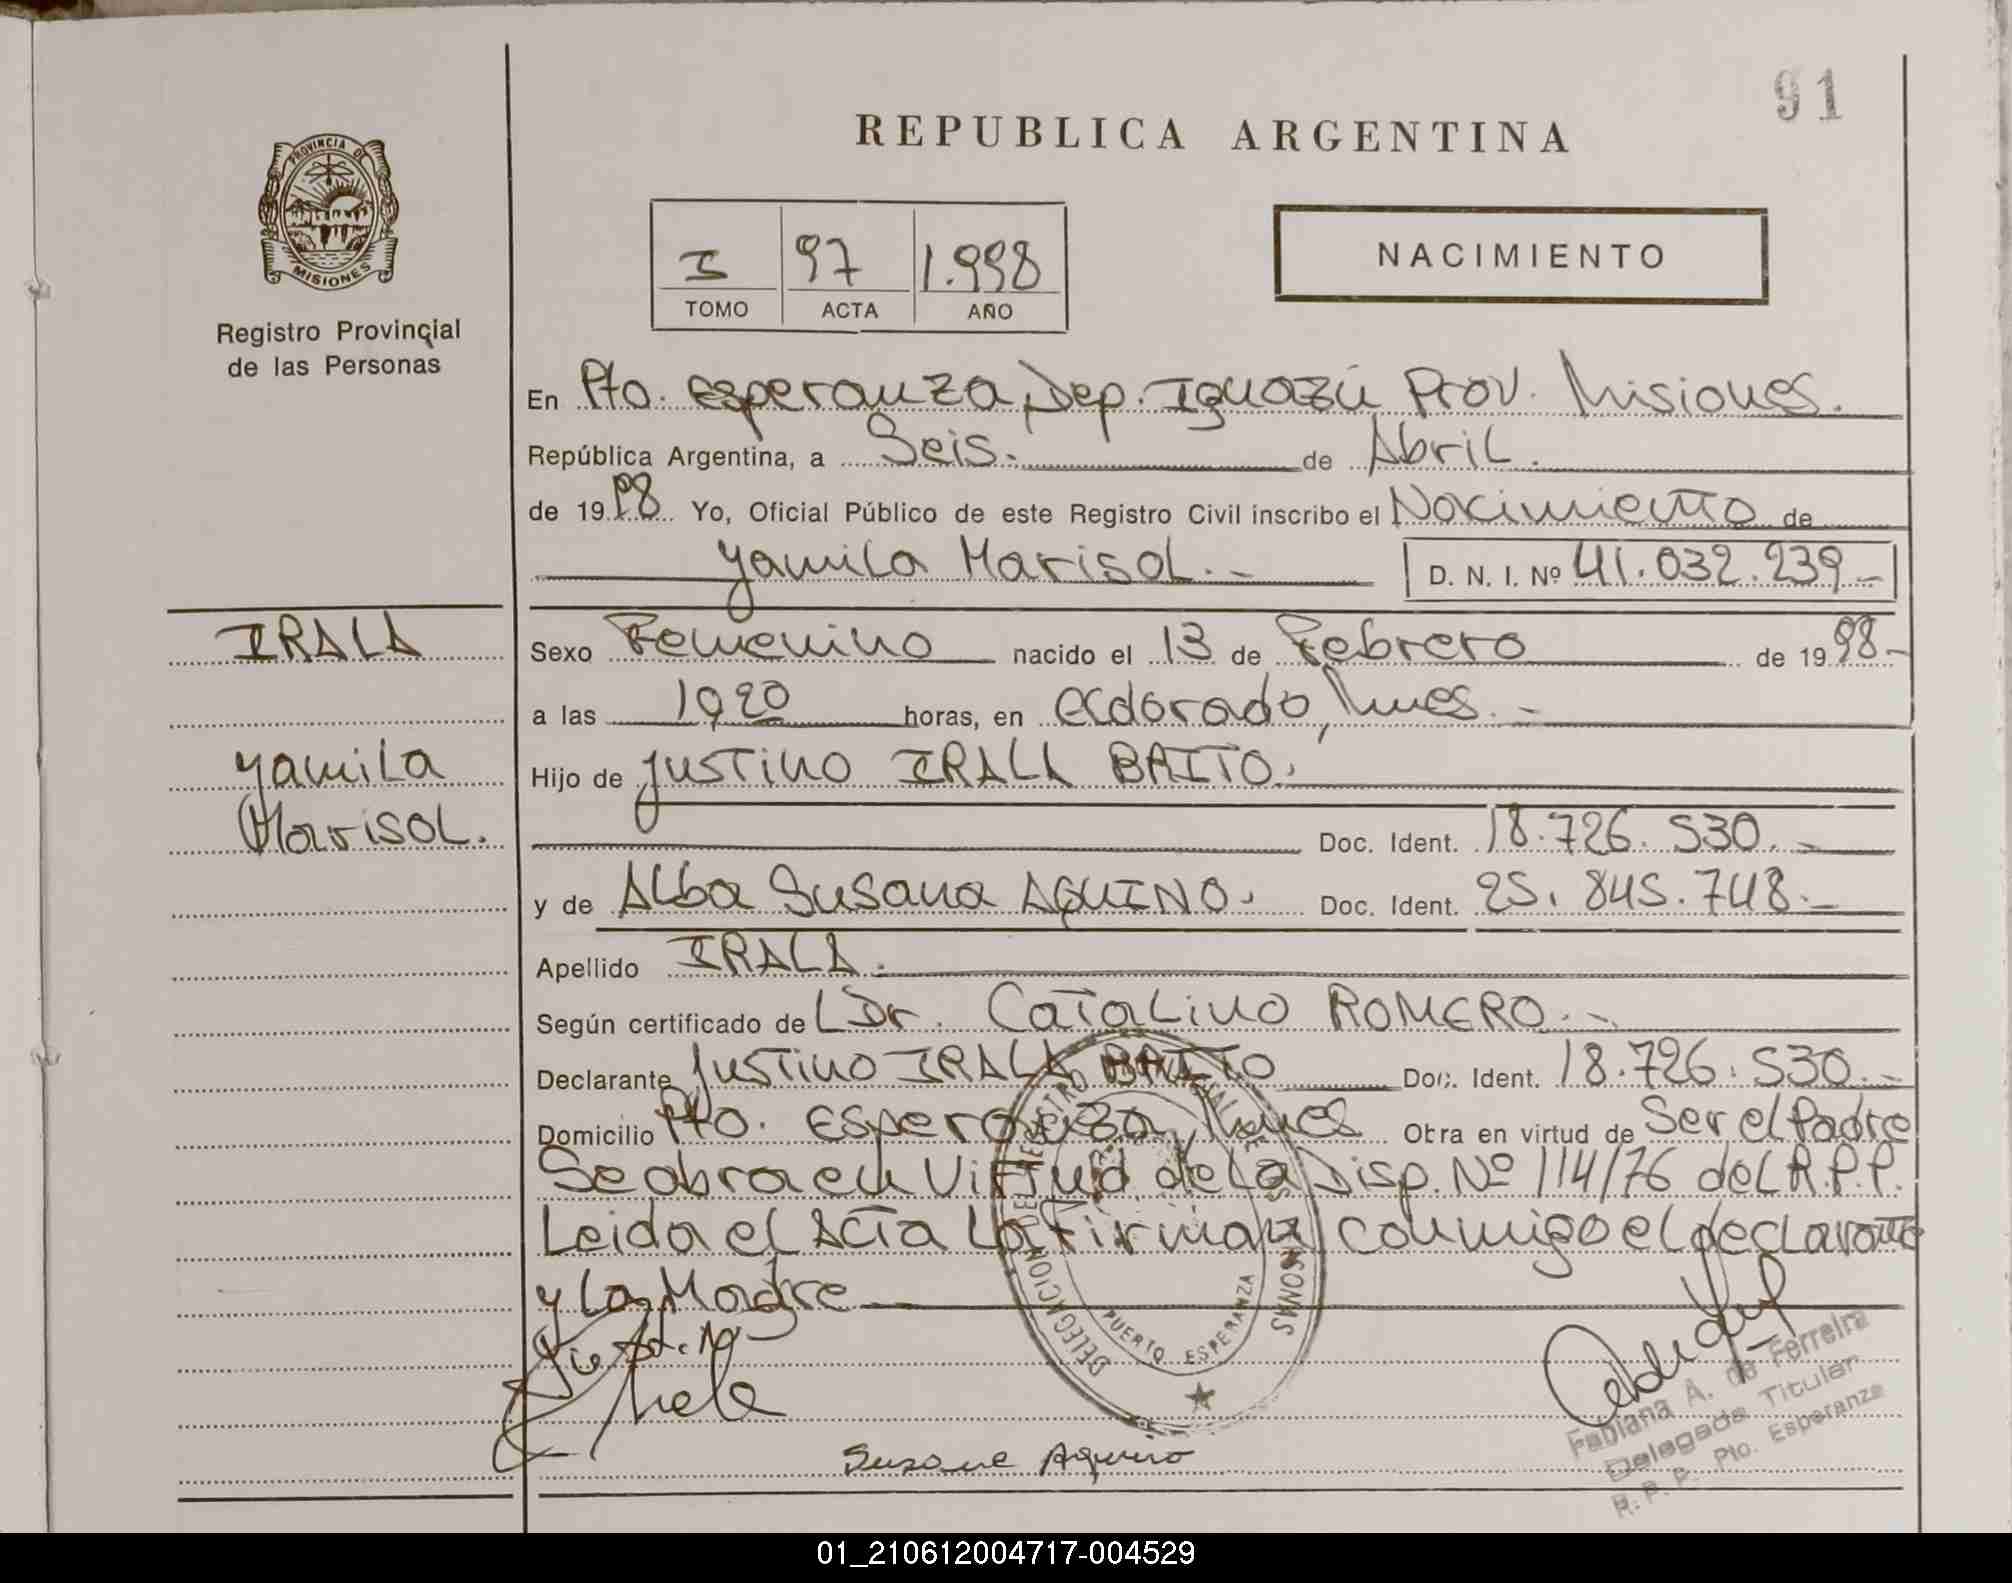 91
REPUBLICA ARGENTINA
PROVINCIA DE
MISIONES
Registro Provincial
de las Personas
I 97 1.998
TOMO ACTA AÑO
NACIMIENTO
En Pto. Esperanza, Dep. Iguazú Prov. Misiones.
República Argentina, a Seis. de Abril.
de 1998 Yo, Oficial Público de este Registro Civil inscribo el Nacimiento de
Yamila Marisol.- D. N. I. Nº 41.032.239-
IRALA
Sexo Femenino nacido el 13 de Febrero de 1998-
a las 1920 horas, en Eldorado, Mnes.-
Yamila
Marisol.
Hijo de Justino IRALA BAITO.
Doc. Ident. 18.726.530.-
y de Alba Susana AQUINO. Doc. Ident. 25.845.748.-
Apellido IRALA.
Según certificado de Dr. Catalino ROMERO.-
Declarante Justino IRALA BAITO Doc. Ident. 18.726.530.-
Domicilio Pto. Esperanza, Mnes Obra en virtud de Ser el Padre
Se obra en Virtud de la Disp. Nº 114/76 del R.P.P.
Leida el Acta La firman conmigo el declarante
y La Madre
DELEGACION DEL REGISTRO PERSONAS
PUERTO ESPERANZA
Susana Aquino
Fabiana A. de Ferreira
Delegada Titular
R. P. P. Pto. Esperanza
01_210612004717-004529